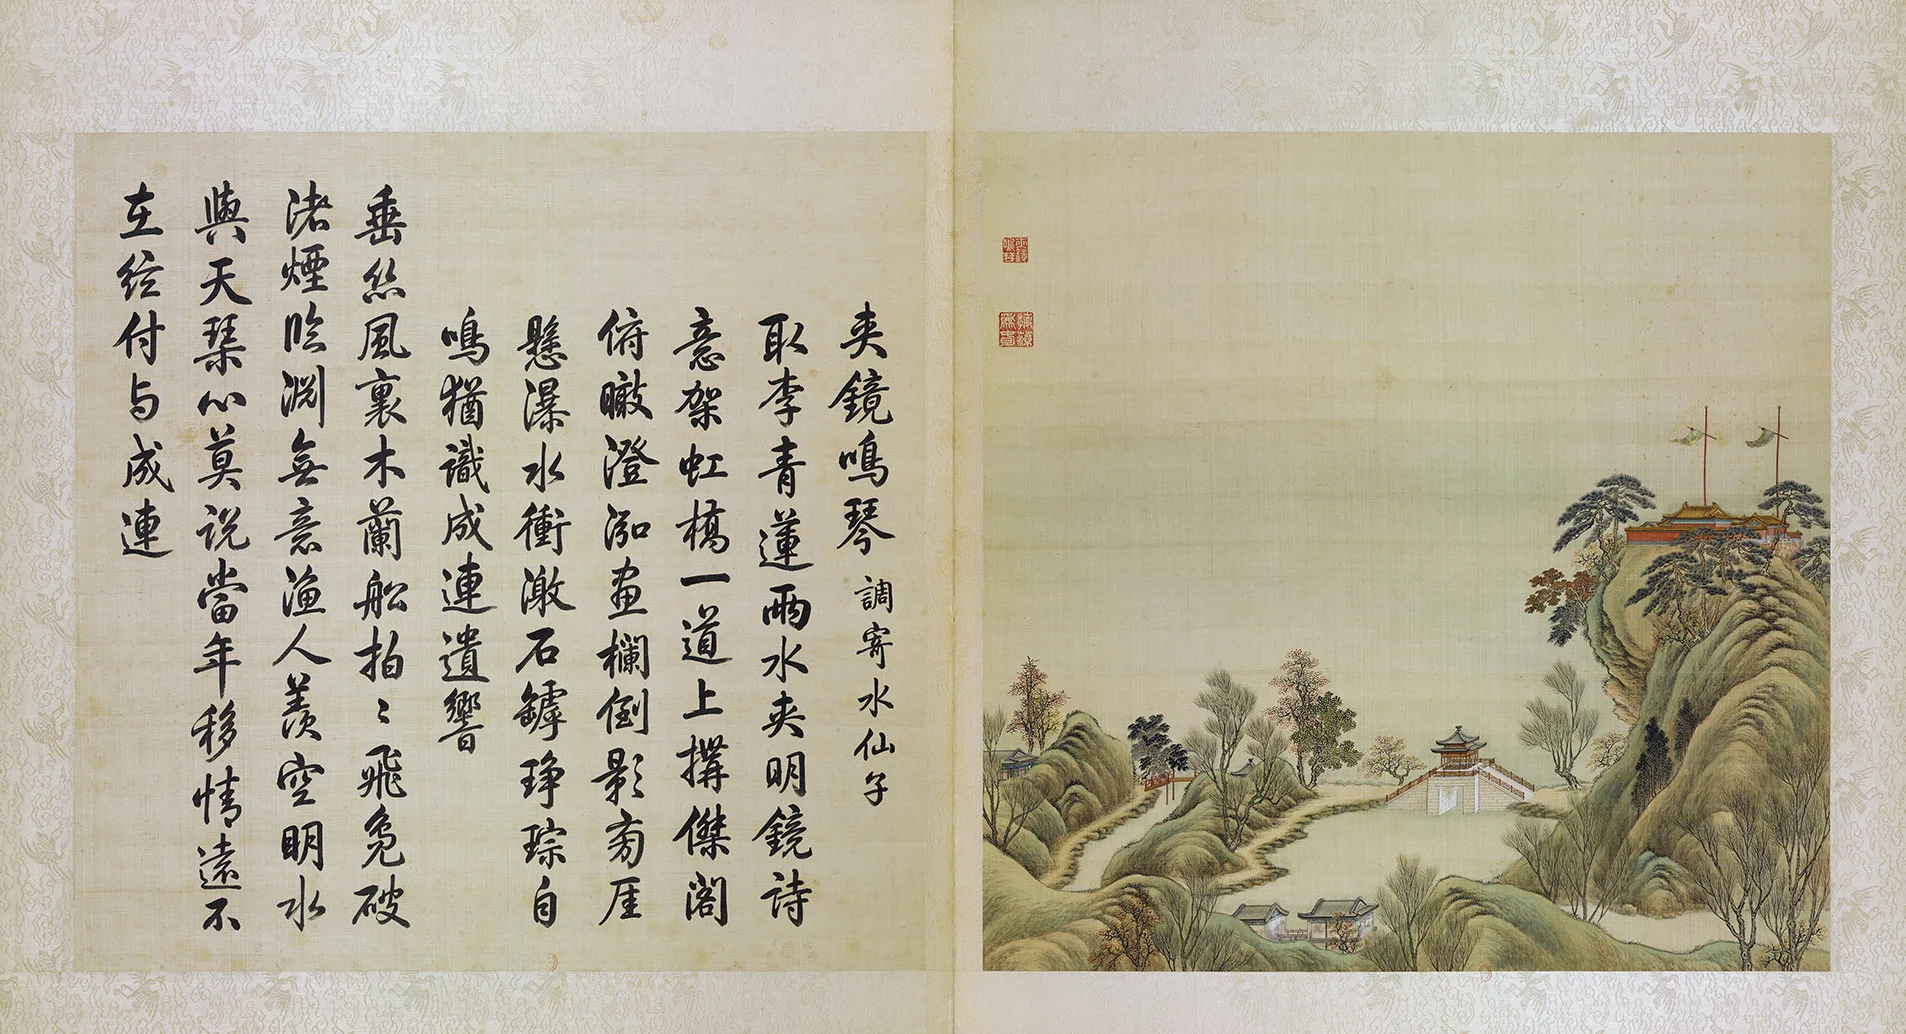 夾鏡鳴琴 調寄水仙子
取李青蓮兩水夾明鏡詩
意架虹橋一道上搆傑閣
俯瞰澄泓畫欄倒影旁厓
懸瀑水衝激石罅琤琮自
鳴猶識成連遺響
垂絲風裏木蘭船拍〻飛鳧破
渚煙臨淵無意漁人羨空明水
與天琴心莫說當年移情遠不
在絃付与成連